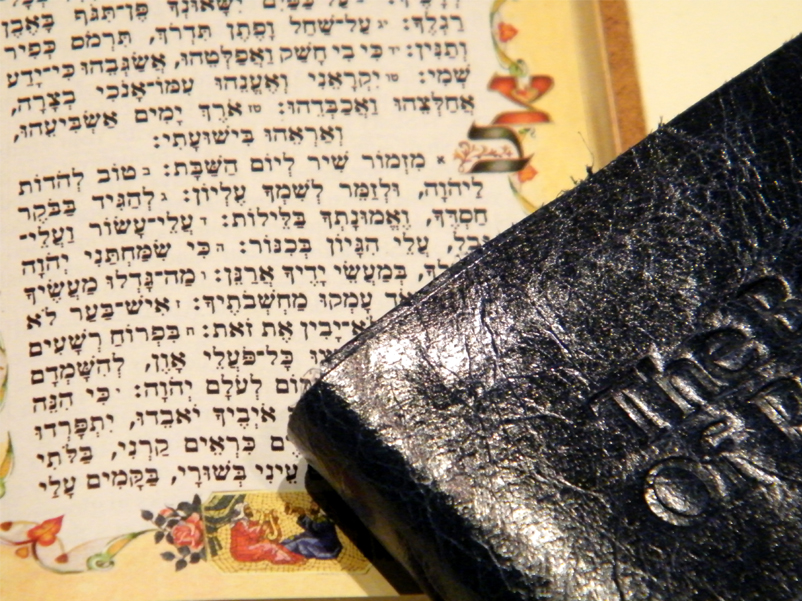 עַל־כַּפַּיִם יִשָּׂאוּנְךָ פֶּן־תִּגֹּף בָּאֶבֶן
רַגְלֶךָ: יג עַל־שַׁחַל וָפֶתֶן תִּדְרֹךְ, תִּרְמֹס כְּפִיר
וְתַנִּין: יד כִּי בִי חָשַׁק וַאֲפַלְּטֵהוּ, אֲשַׂגְּבֵהוּ כִּי־יָדַע
שְׁמִי: טו יִקְרָאֵנִי וְאֶעֱנֵהוּ עִמּוֹ־אָנֹכִי בְצָרָה,
אֲחַלְּצֵהוּ וַאֲכַבְּדֵהוּ: טז אֹרֶךְ יָמִים אַשְׂבִּיעֵהוּ,
וְאַרְאֵהוּ בִּישׁוּעָתִי:
צב
א מִזְמוֹר שִׁיר לְיוֹם הַשַּׁבָּת: ב טוֹב לְהֹדוֹת
לַיהֹוָה, וּלְזַמֵּר לְשִׁמְךָ עֶלְיוֹן: ג לְהַגִּיד בַּבֹּקֶר
חַסְדֶּךָ, וֶאֱמוּנָתְךָ בַּלֵּילוֹת: ד עֲלֵי־עָשׂוֹר וַעֲלֵי־
נָבֶל, עֲלֵי הִגָּיוֹן בְּכִנּוֹר: ה כִּי שִׂמַּחְתַּנִי יְהֹוָה
בְּמַעֲשֵׂי יָדֶיךָ אֲרַנֵּן: ו מַה־גָּדְלוּ מַעֲשֶׂיךָ
עָמְקוּ מַחְשְׁבֹתֶיךָ: ז אִישׁ־בַּעַר לֹא
לֹא־יָבִין אֶת זֹאת: ח בִּפְרוֹחַ רְשָׁעִים
כָּל־פֹּעֲלֵי אָוֶן, לְהִשָּׁמְדָם
לְעֹלָם יְהֹוָה: י כִּי הִנֵּה
אֹיְבֶיךָ יֹאבֵדוּ, יִתְפָּרְדוּ
כִּרְאֵים קַרְנִי, בַּלֹּתִי
עֵינִי בְּשׁוּרָי, בַּקָּמִים עָלַי
The
Of